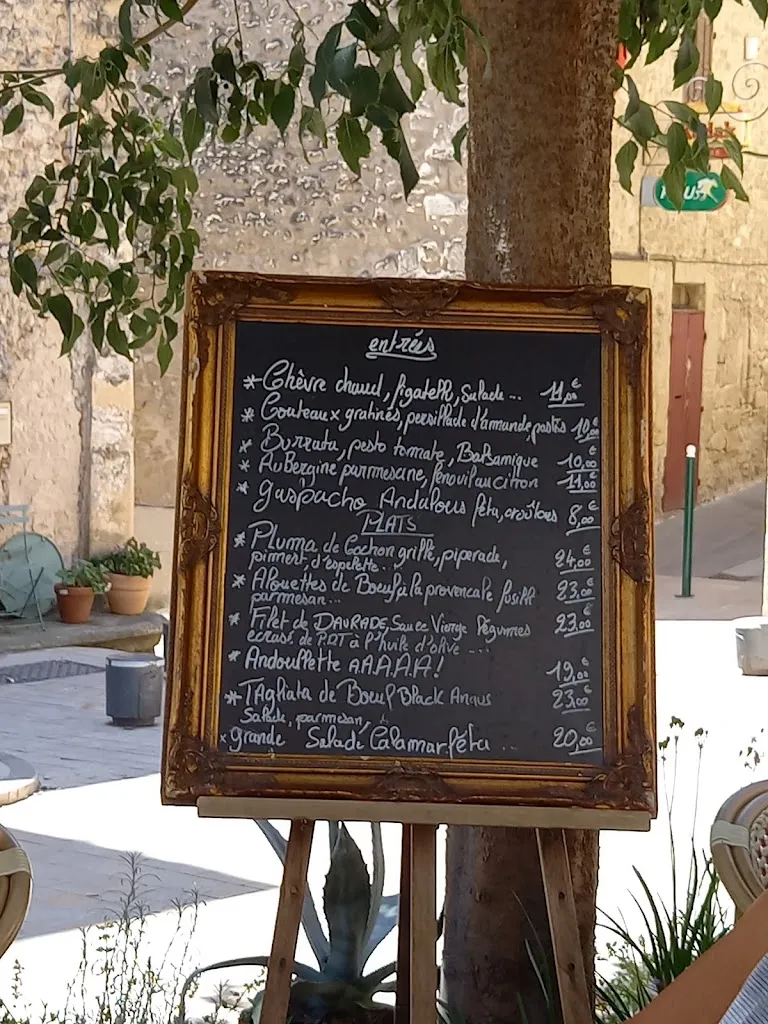 entrées
* Chèvre chaud, figatelli, Salade... 11,00€
* Couteaux gratinés, persillade d'amande, pastis 10,00€
* Burrata, pesto tomate, Balsamique 10,00€
* AuBergine parmesane, fenouil au citron 11,00€
* gaspacho Andalous féta, croûtons 8,00€
PLATS
* Pluma de Cochon grillé, piperade, 24,00€
piment d'espelette...
* Alouettes de Boeuf à la provençale fusilli 23,00€
parmesan...
* Filet de DAURADE, Sauce Vierge légumes 23,00€
écrasé de PDT à l'huile d'olive ...
* Andouillette AAAAA! 19,00€
* TAgliata de Boeuf Black Angus 23,00€
Salade, parmesan,
* grande Salade Calamar féta .. 20,00€